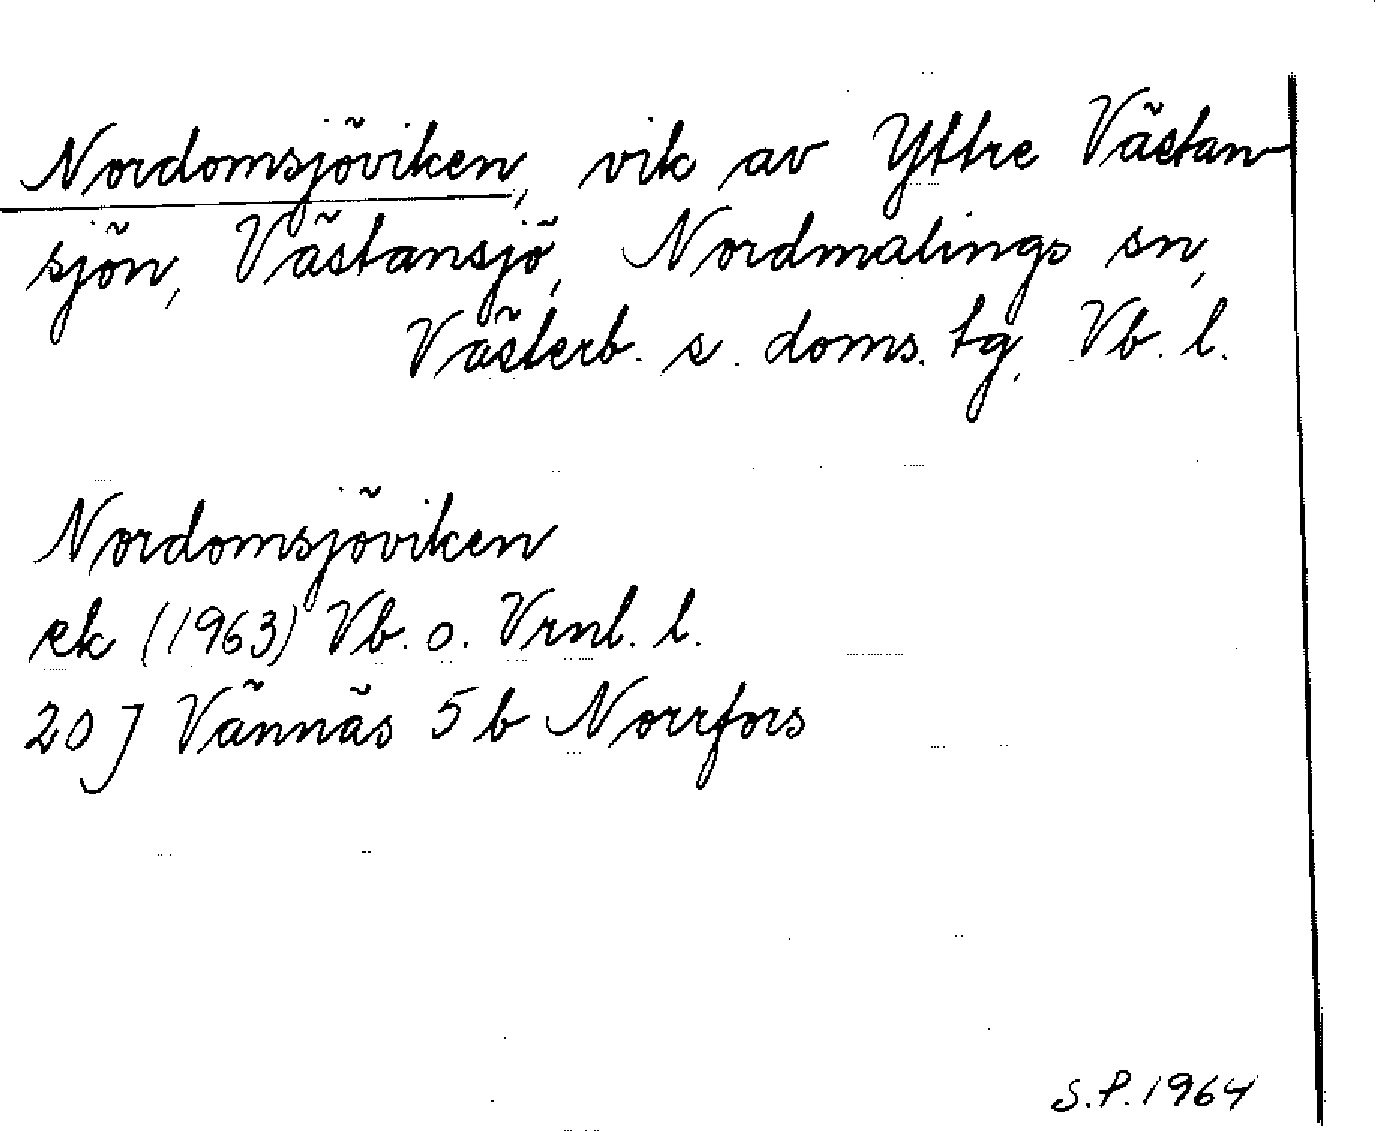 Nordomsjöviken, vik av Yttre Västan-
sjön, Västansjö, Nordmalings sn,
Västerb. s. doms. tg, Vb. l.
Nordomsjöviken
ek (1963) Vb. o. Vrnl. l.
20 J Vännäs 5 b Norrfors
S.P. 1964